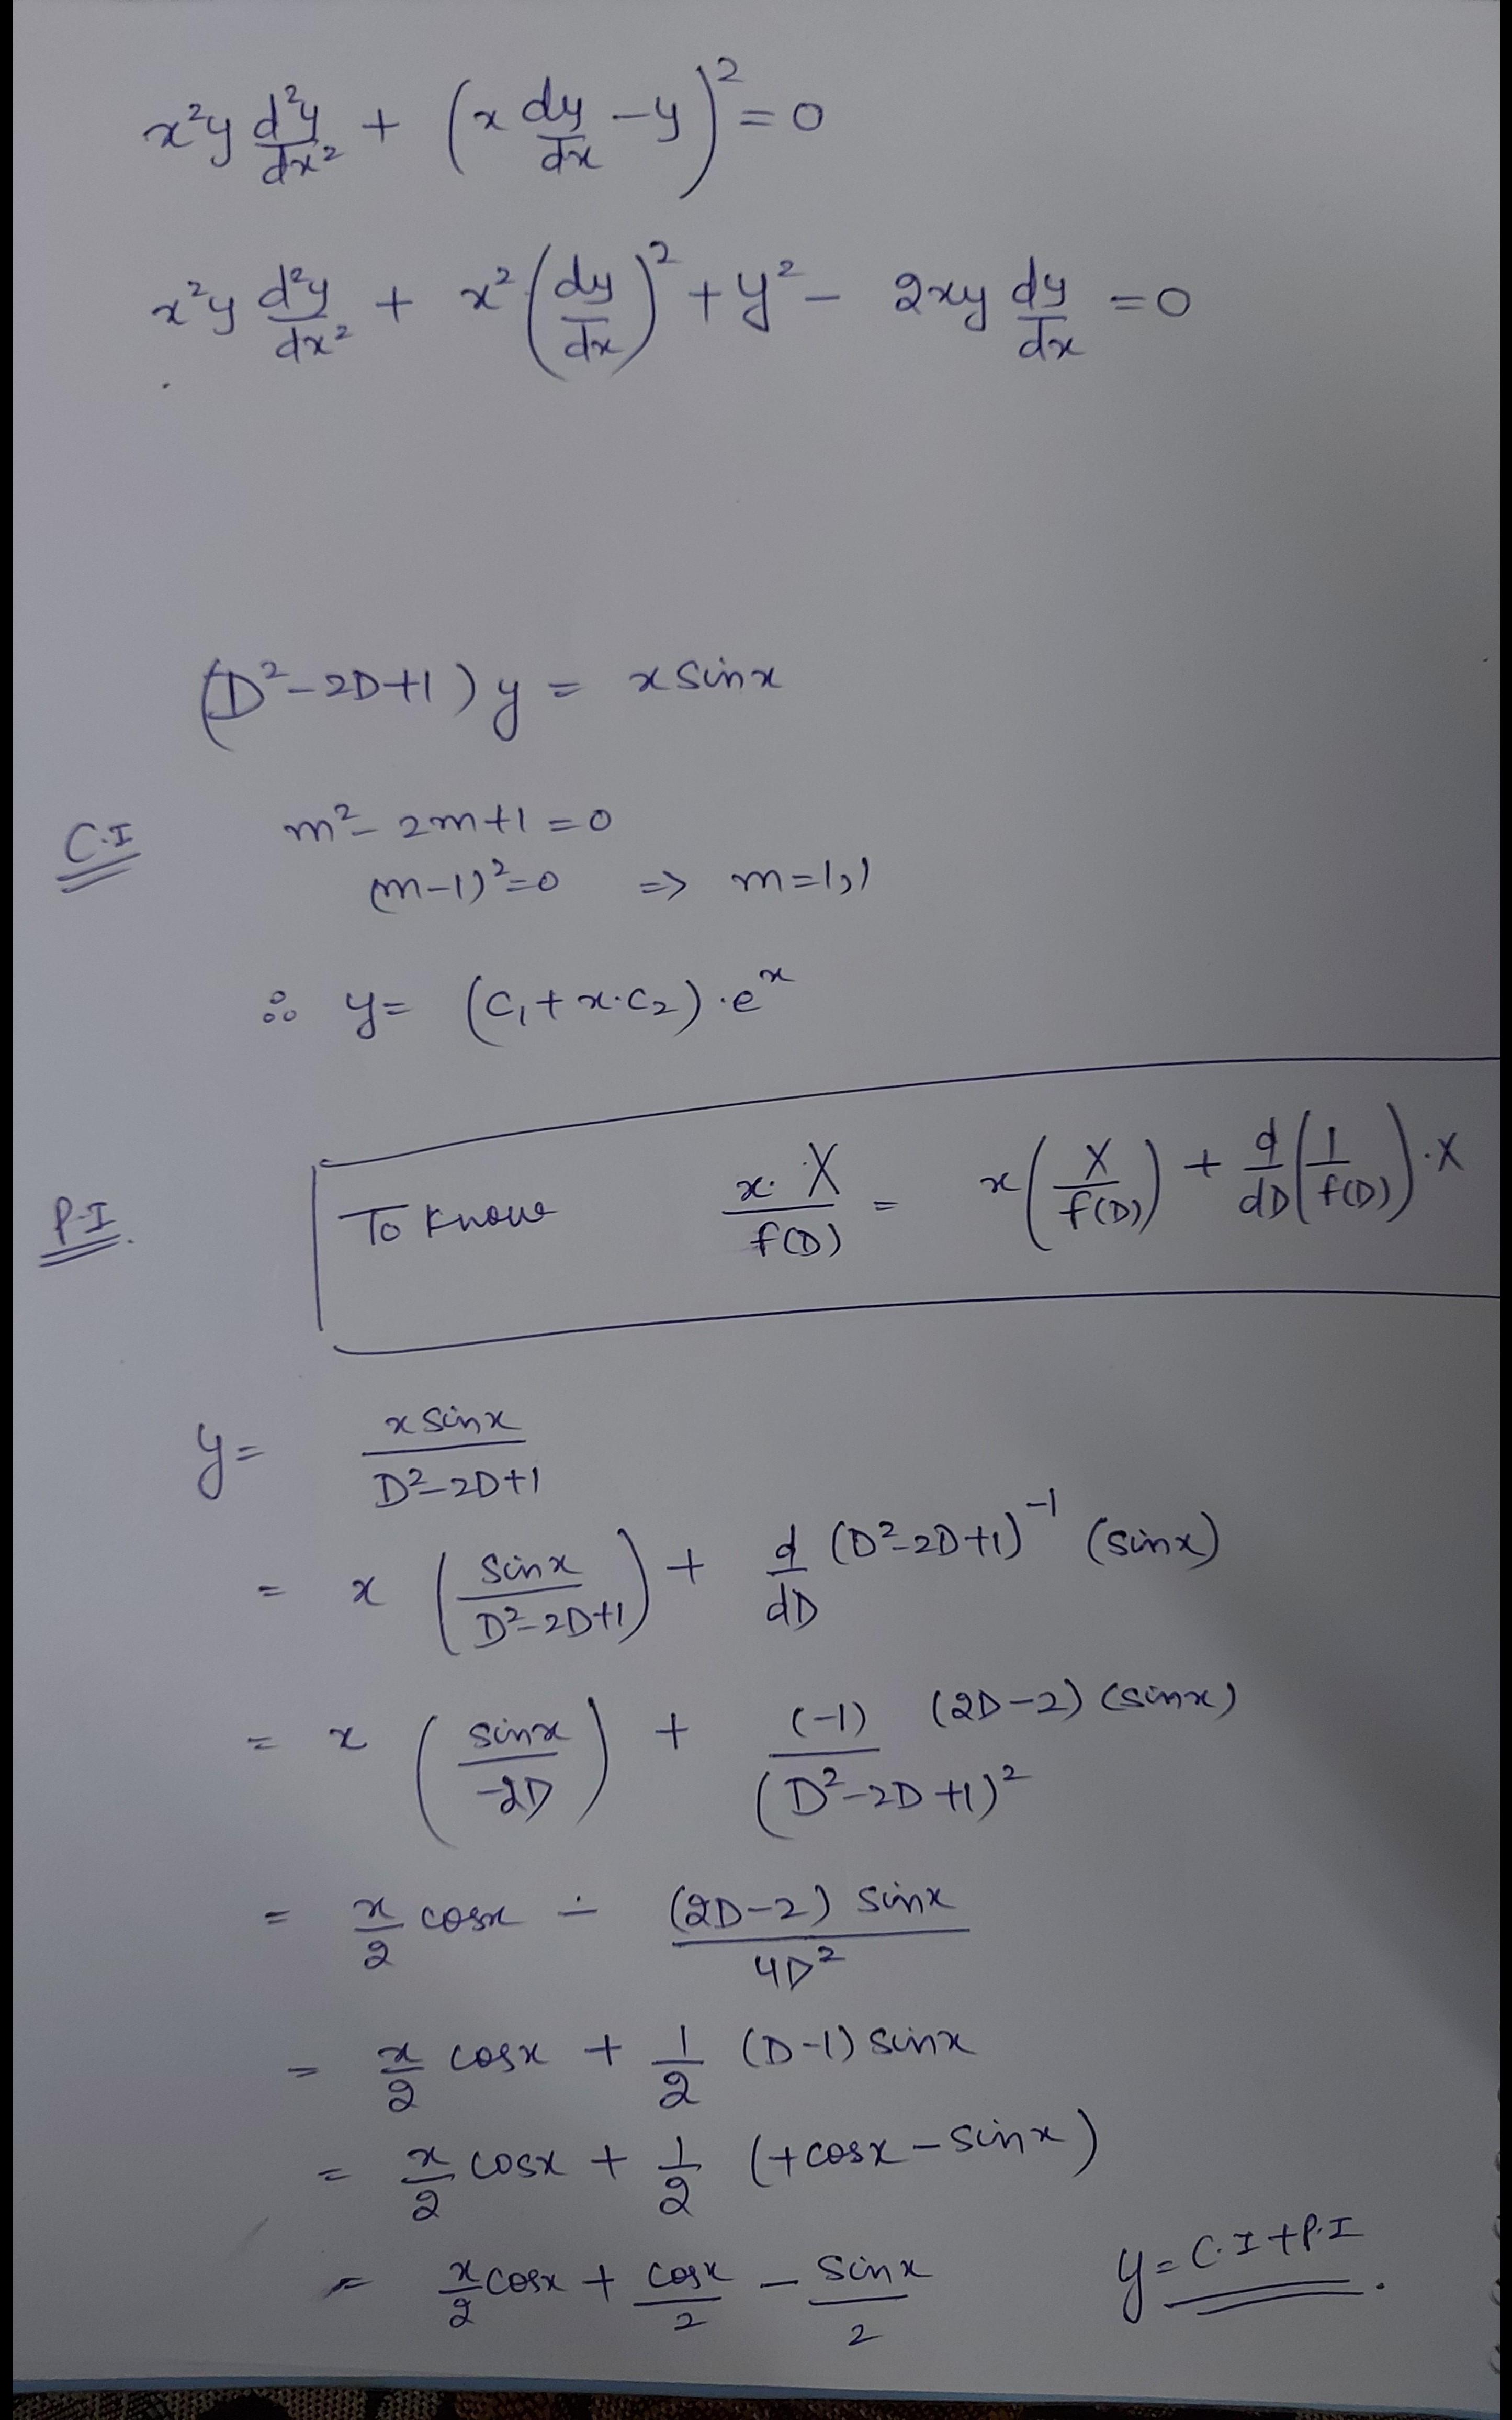 x²y d²y/dx² + (x dy/dx - y)² = 0
x²y d²y/dx² + x² (dy/dx)² + y² - 2xy dy/dx = 0
(D² - 2D + 1) y = x sin x
C.I m² - 2m + 1 = 0
(m - 1)² = 0 => m = 1, 1
∴ y = (C₁ + x·C₂)·eˣ
P.I. To know x·X/f(D) = x (X/f(D)) + d/dD (1/f(D))·X
y = x sin x/D² - 2D + 1
= x (sin x/D² - 2D + 1) + d/dD (D² - 2D + 1)⁻¹ (sin x)
= x (sin x/-2D) + (-1) (2D - 2) (sin x)/(D² - 2D + 1)²
= x/2 cos x - (2D - 2) sin x/4D²
= x/2 cos x + 1/2 (D - 1) sin x
= x/2 cos x + 1/2 (+cos x - sin x)
= x/2 cos x + cos x/2 - sin x/2 y = C.I + P.I.